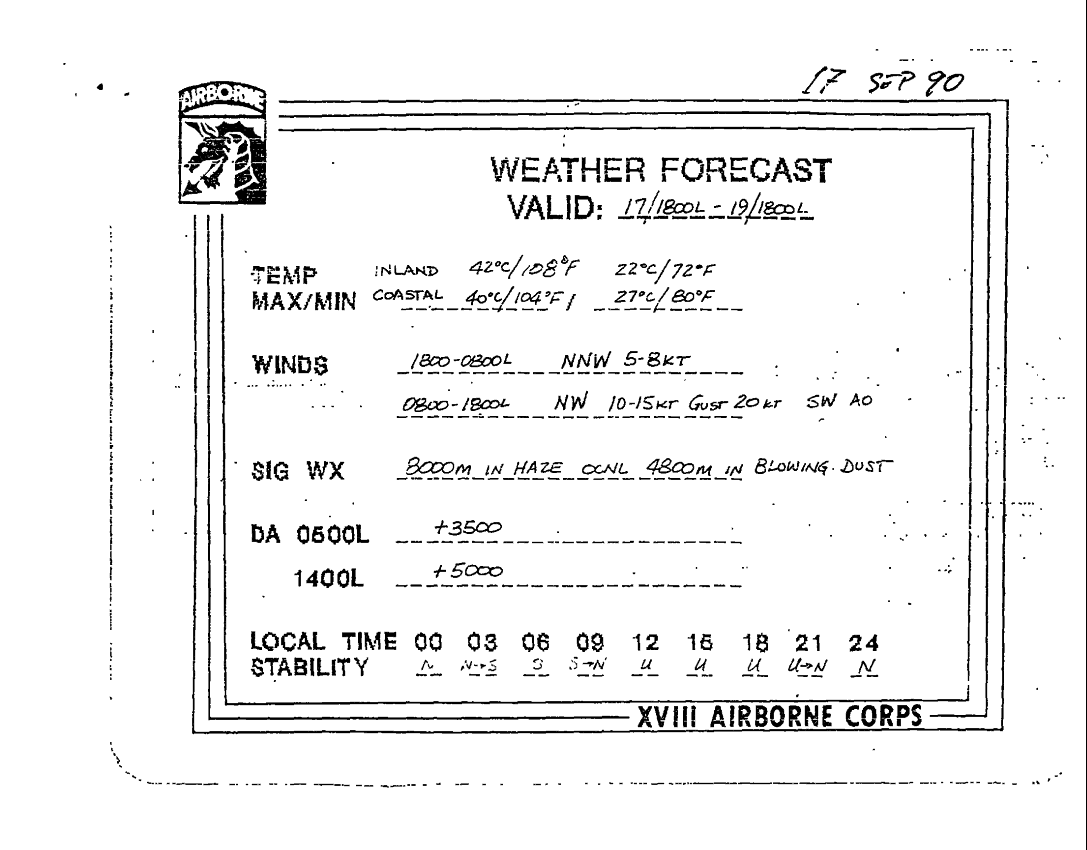 17 SEP 90
AIRBORNE
WEATHER FORECAST
VALID: 17/1800L - 19/1800L
TEMP INLAND 42°C/108°F 22°C/72°F
MAX/MIN COASTAL 40°C/104°F / 27°C/80°F
WINDS 1800-0800L NNW 5-8KT
0800-1800L NW 10-15KT GUST 20KT SW AO
SIG WX 8000M IN HAZE OCNL 4800M IN BLOWING DUST
DA 0600L +3500
1400L +5000
LOCAL TIME 00 03 06 09 12 15 18 21 24
STABILITY N N→S S S→N U U U U→N N
XVIII AIRBORNE CORPS